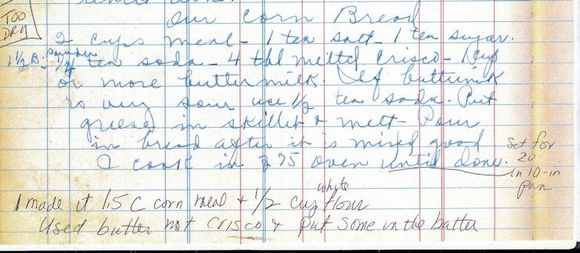 Our Corn Bread
TOO DRY
2 cups meal - 1 tea salt - 1 tea sugar.
1 1/2 B. Powder
1/4 tea soda - 4 tbl melted Crisco - 1 cup
or more buttermilk If buttermilk
is very sour use 1/2 tea soda. Put
grease in skillet & melt - Pour
in bread after it is mixed good
I cook in 375 oven until done.
Set for 20 in 10-in pan
I made it 1.5 C corn meal & 1/2 cup white flour
Used butter not crisco & put some in the batter